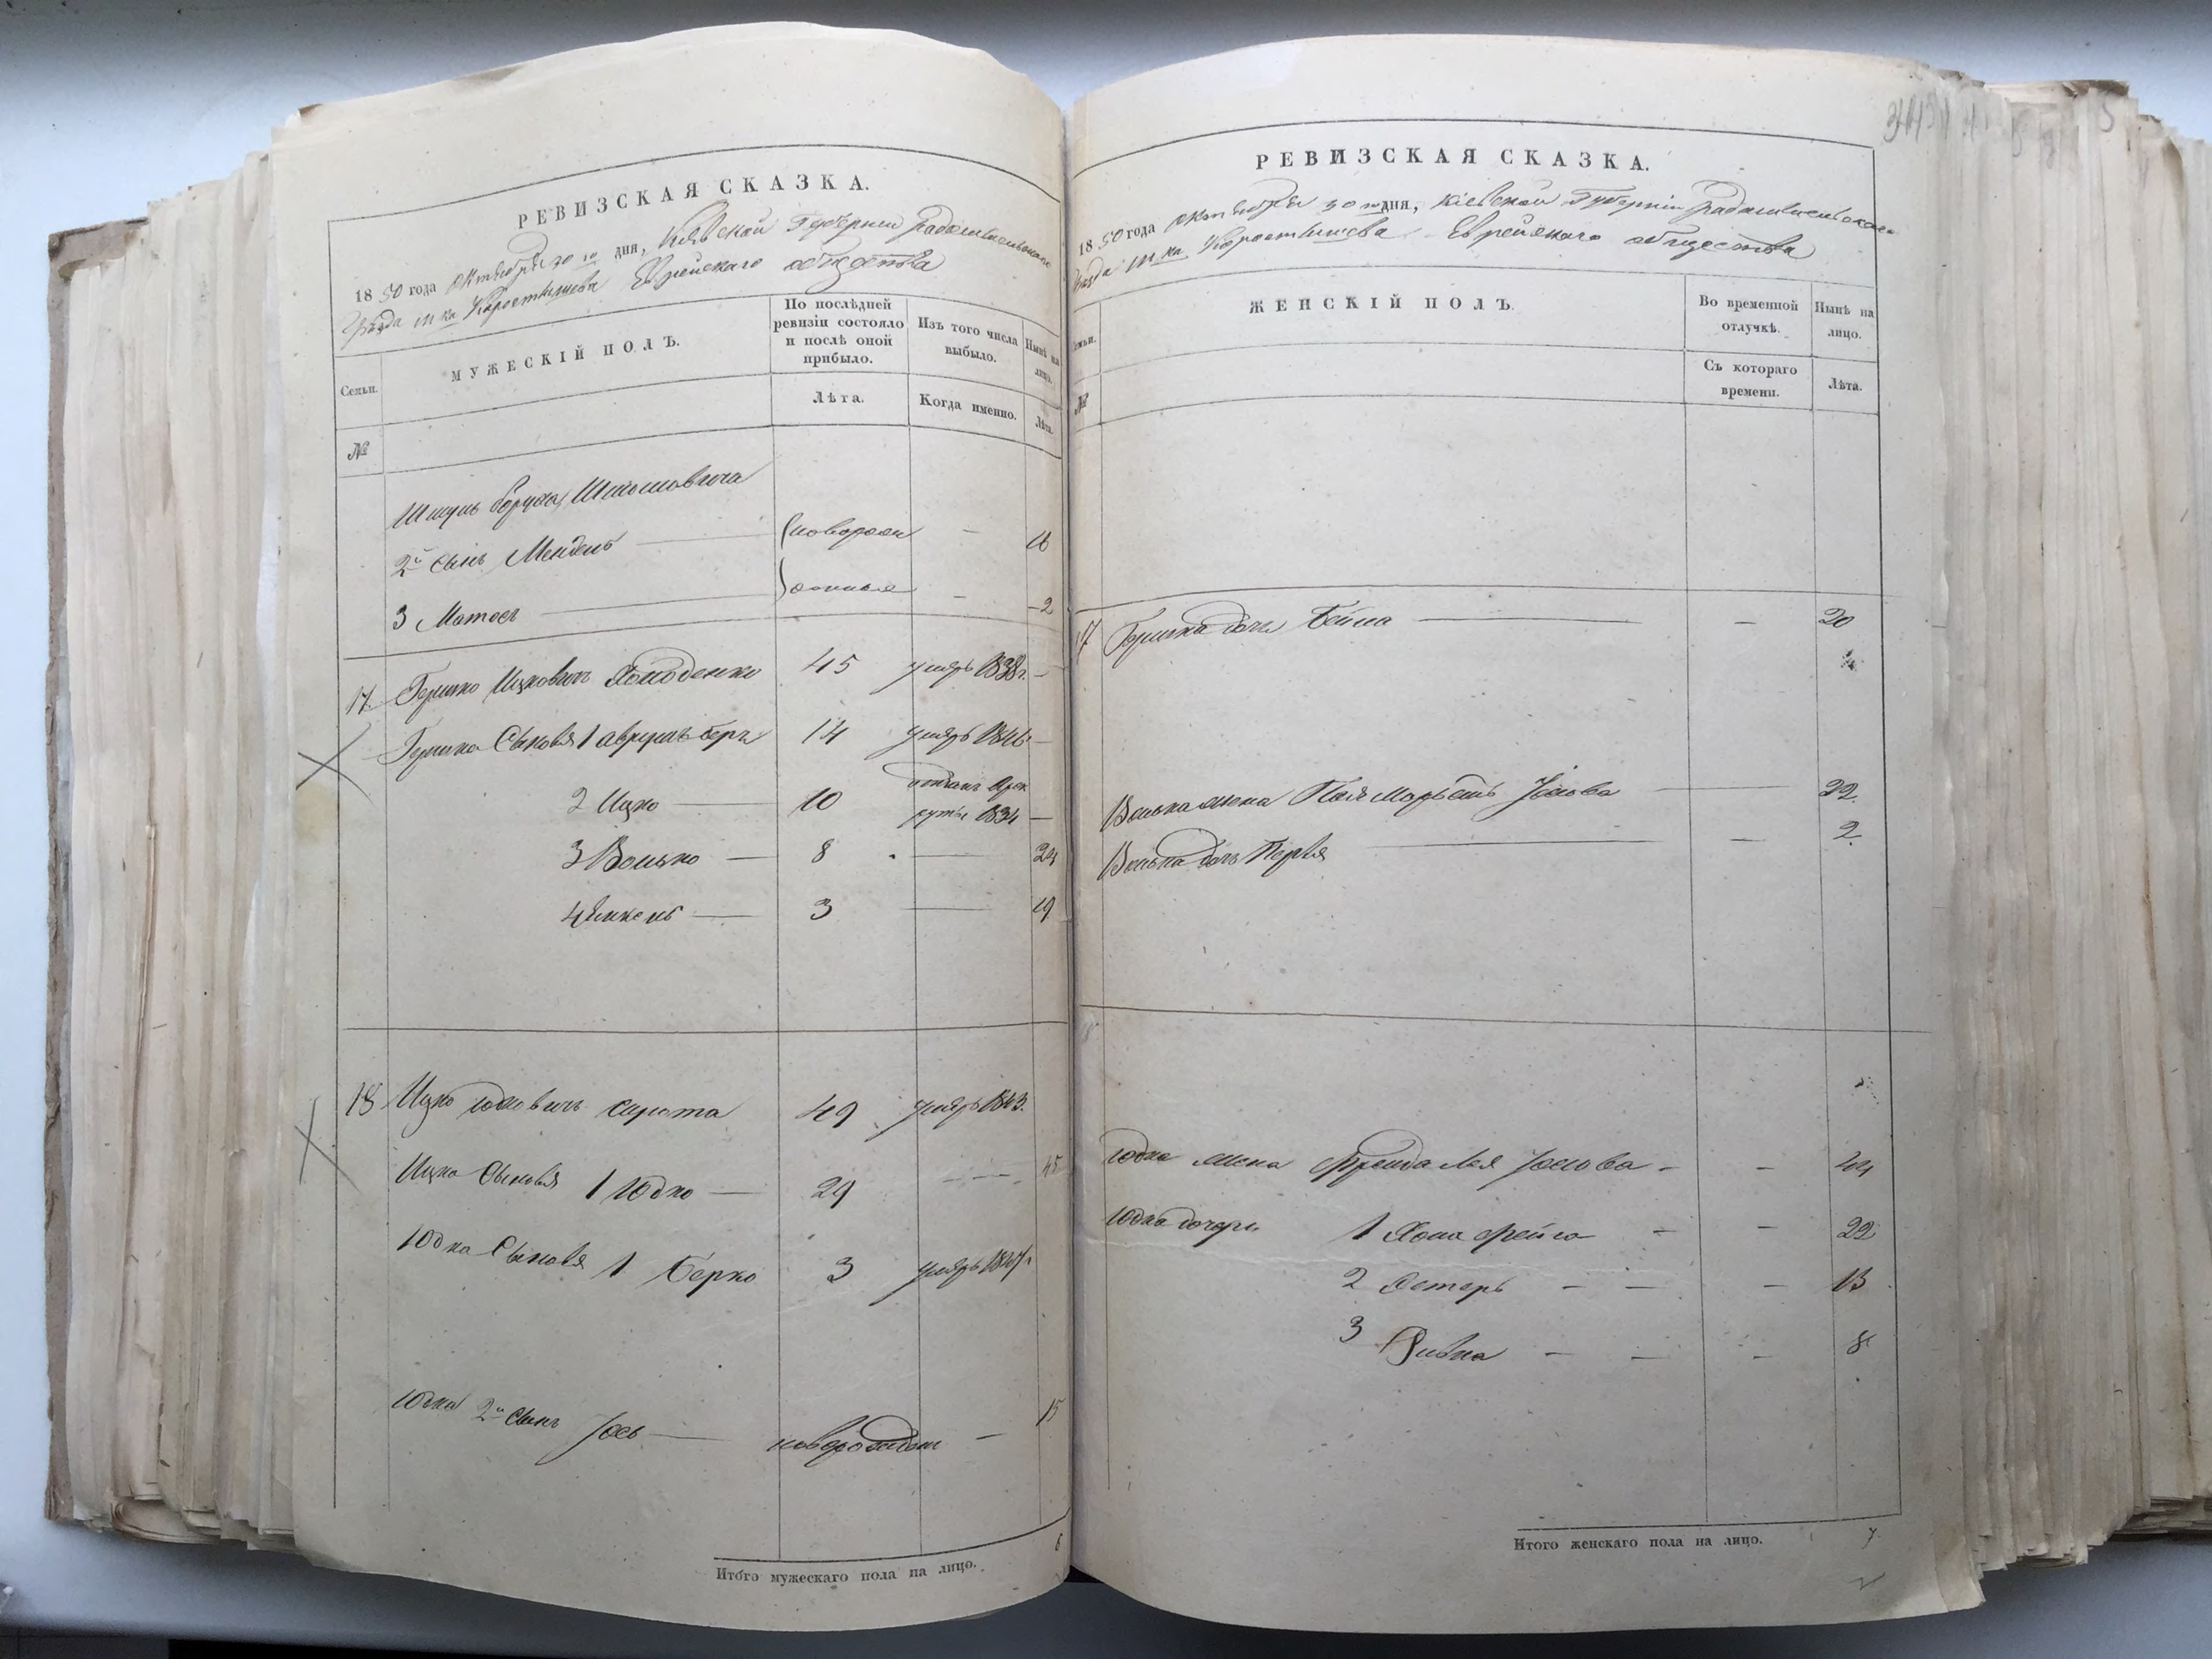 РЕВИЗСКАЯ СКАЗКА.
1850 года Октября 30 го дня, Кіевской Губерніи Радомысльскаго
Уѣзда М-ка Коростышева Еврейскаго общества
Семьи.
МУЖЕСКІЙ ПОЛЪ.
По послѣдней ревизіи состояло и послѣ оной прибыло.
Изъ того числа выбыло.
Нынѣ на лицо.
№
Лѣта.
Когда именно.
Лѣта.
2й сынъ Мендель новорож 16
3 Мотель денныя 2
17. Гершко Ицковичъ 45 умеръ 1838г. —
Гершка Сыновья 1 Беръ 14 умеръ 1846 —
2 Ицко — 10 отданъ рекруты 1834 —
3 Волько — 8 — 24
4 — 3 — 19
18 Ицко Юдковичъ Сирота 49 умеръ 1843.
Ицка Сыновья 1 Юдко — 29 — 45
Юдка Сыновья 1 Берко 3 умеръ 1847г.
Юдки 2й Сынъ Іось — новорожден — 15
Итого мужескаго пола на лицо. 6
РЕВИЗСКАЯ СКАЗКА.
1850 года Октября 30 го дня, Кіевской Губерніи Радомысльскаго
Уѣзда М-ка Коростышева Еврейскаго общества
Семьи.
ЖЕНСКІЙ ПОЛЪ.
Во временной отлучкѣ.
Нынѣ на лицо.
№
Съ котораго времени.
Лѣта.
17 Гершка дочь Бейла — — 20
Волька жена Марьемъ — 22.
Волька дочь Перля — — 2.
Юдка жена Фрейда Лея Іосiова - - 44
Юдка дочери 1 Хана Фейга - - 22
2 Естеръ — — - 13
3 Ривка — — - 8
Итого женскаго пола на лицо. 7.